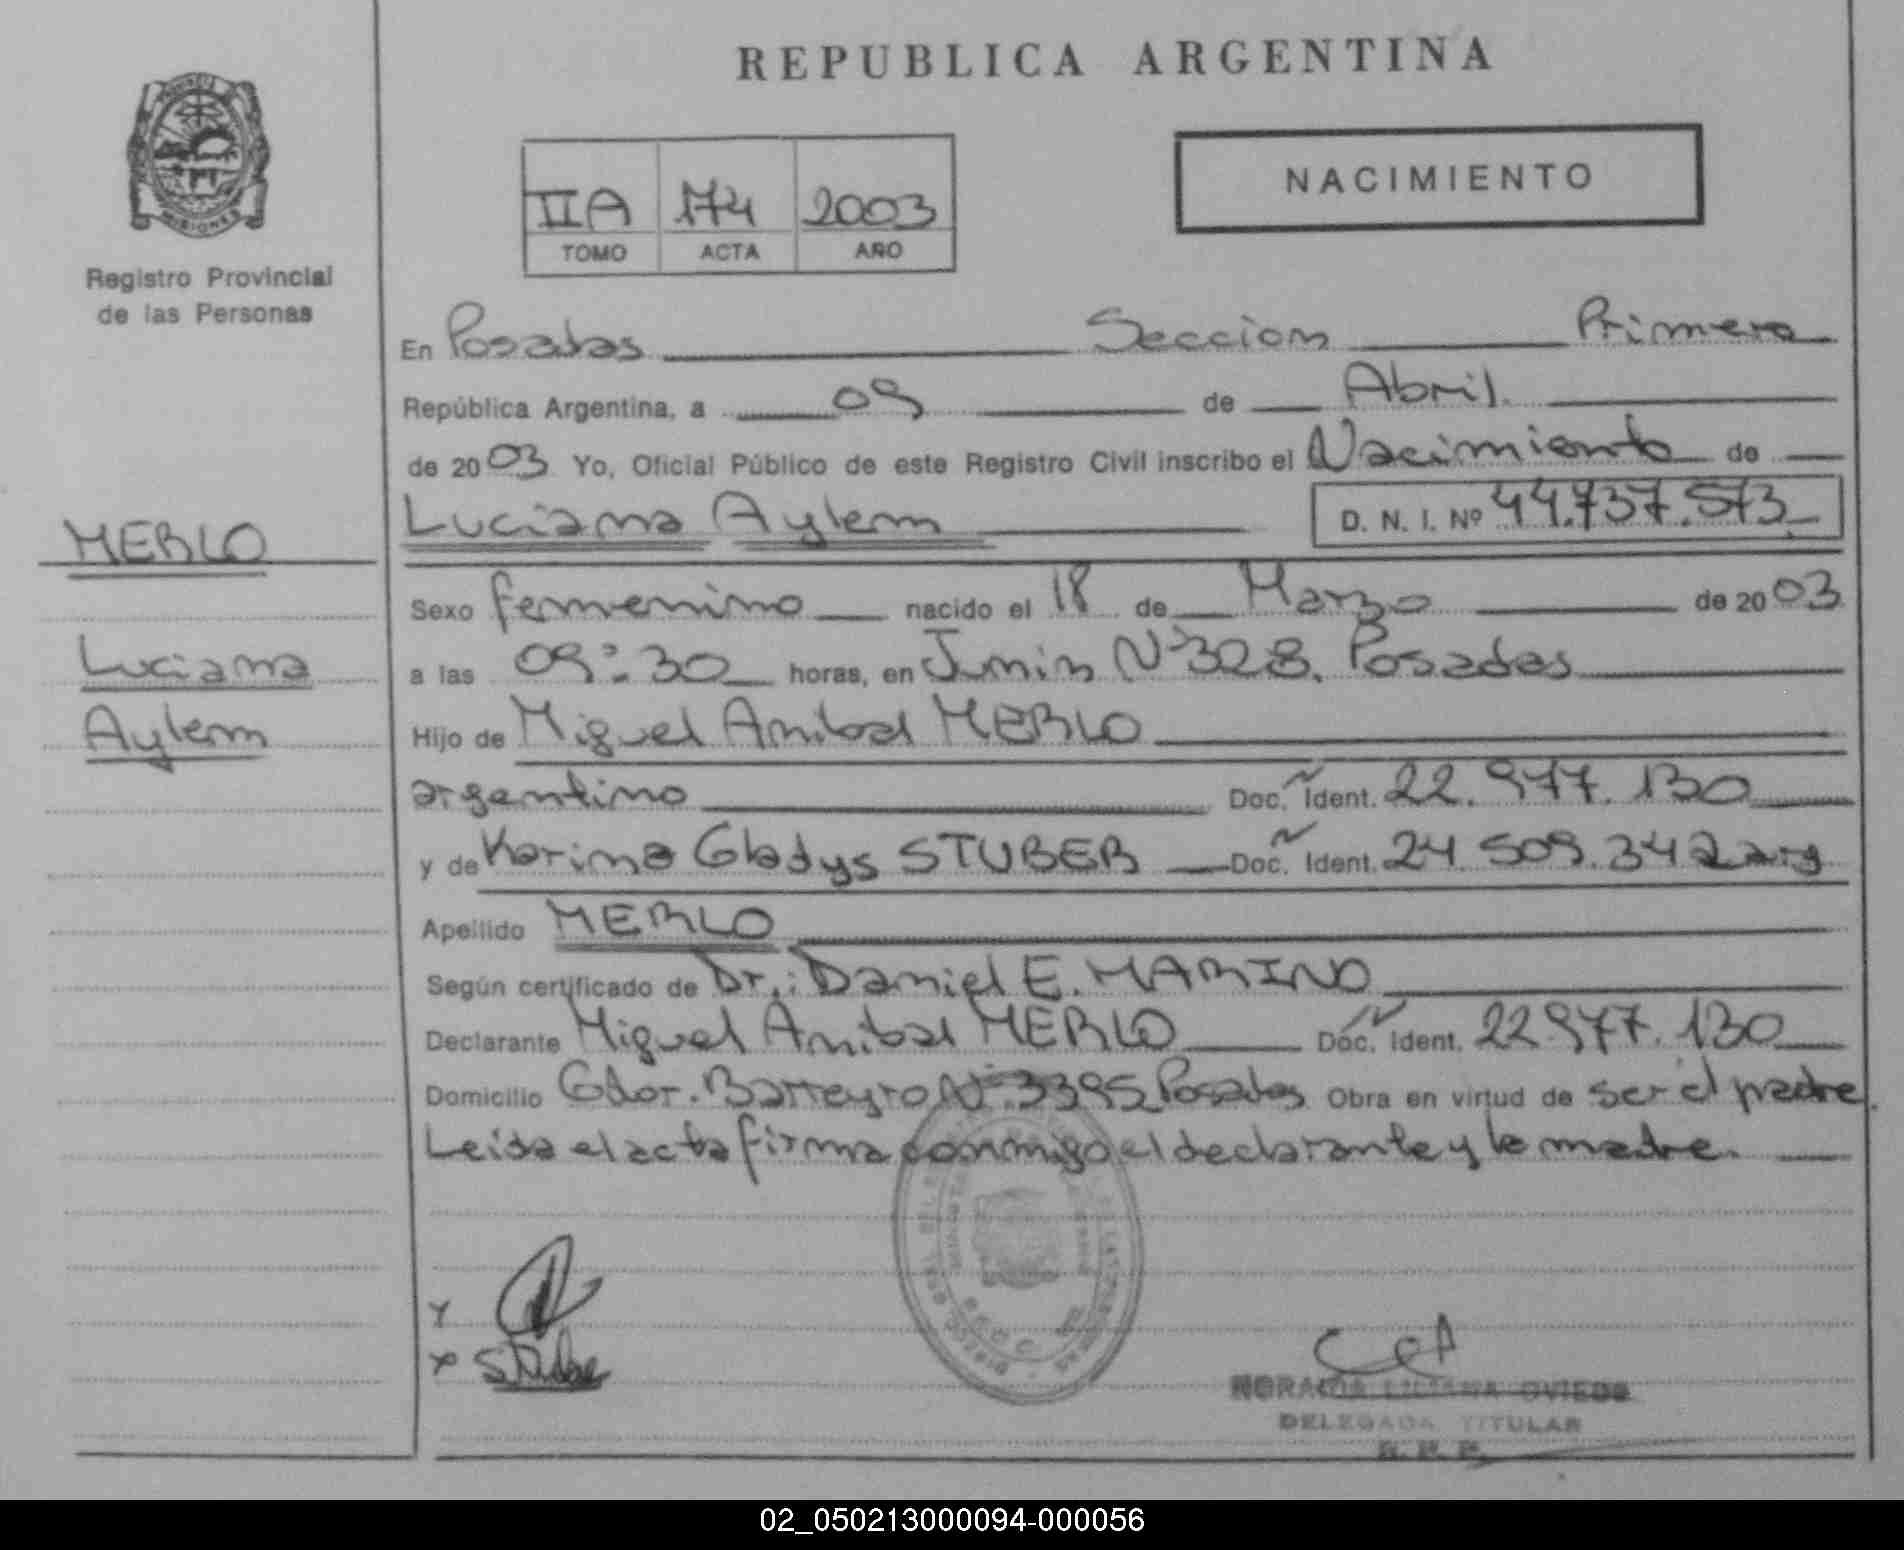 REPUBLICA ARGENTINA
NACIMIENTO
IIA 174 2003
TOMO ACTA AÑO
MISIONES
Registro Provincial
de las Personas
En Posadas Seccion Primera
República Argentina, a 09 de Abril.
de 2003 Yo, Oficial Público de este Registro Civil inscribo el Nacimiento de
Luciana Aylem D. N. I. Nº 44.737.573
MERLO
Sexo femenino nacido el 18 de Marzo de 2003
Luciana
a las 09:30 horas, en Junin Nº 328. Posadas
Aylem
Hijo de Miguel Anibal MERLO
argentino Doc. Ident. 22.977.130
y de Karima Gladys STUBER Doc. Ident. 24.509.342 arg
Apellido MERLO
Según certificado de Dr.: Daniel E. MARINO
Declarante Miguel Anibal MERLO Doc. Ident. 22.977.130
Domicilio Gdor. Barreyro Nº 3395 Posadas Obra en virtud de ser el padre.
Leida el acta firma conmigo el declarante y la madre.
LILIANA OVIEDO
DELEGADA TITULAR
R. P. P.
02_050213000094-000056